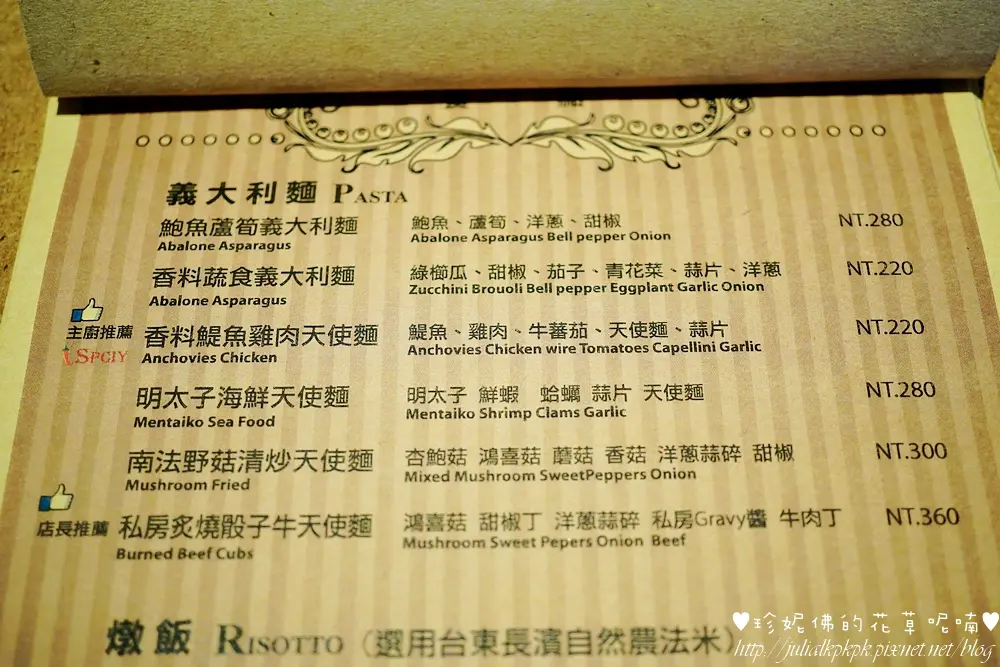 義大利麵 PASTA
鮑魚蘆筍義大利麵 鮑魚、蘆筍、洋蔥、甜椒 NT.280
Abalone Asparagus Abalone Asparagus Bell pepper Onion
香料蔬食義大利麵 綠櫛瓜、甜椒、茄子、青花菜、蒜片、洋蔥 NT.220
Abalone Asparagus Zucchini Brouoli Bell pepper Eggplant Garlic Onion
主廚推薦 香料鯷魚雞肉天使麵 鯷魚、雞肉、牛蕃茄、天使麵、蒜片 NT.220
SPCIY Anchovies Chicken Anchovies Chicken wire Tomatoes Capellini Garlic
明太子海鮮天使麵 明太子 鮮蝦 蛤蠣 蒜片 天使麵 NT.280
Mentaiko Sea Food Mentaiko Shrimp Clams Garlic
南法野菇清炒天使麵 杏鮑菇 鴻喜菇 蘑菇 香菇 洋蔥蒜碎 甜椒 NT.300
Mushroom Fried Mixed Mushroom SweetPeppers Onion
店長推薦 私房炙燒骰子牛天使麵 鴻喜菇 甜椒丁 洋蔥蒜碎 私房Gravy醬 牛肉丁 NT.360
Burned Beef Cubs Mushroom Sweet Pepers Onion Beef
燉飯 RISOTTO（選用台東長濱自然農法米）
♥珍妮佛的花草呢喃♥
http://julialkpkpk.pixnet.net/blog